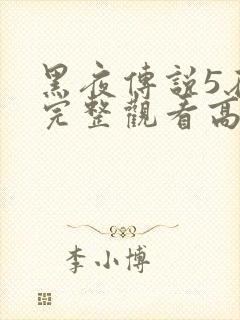 黑夜傳說5
完整觀看高
李小博